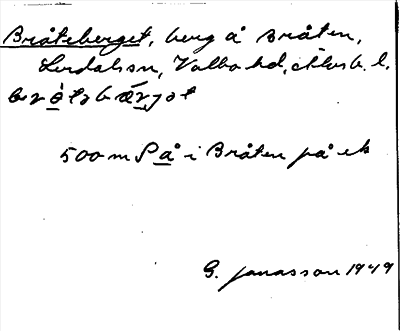 Bråteberget, berg å Bråten,
Lerdalssn, Valbo hd, Älvsb. l.
500 m S å i Bråten på ek
G. Jonasson 1949